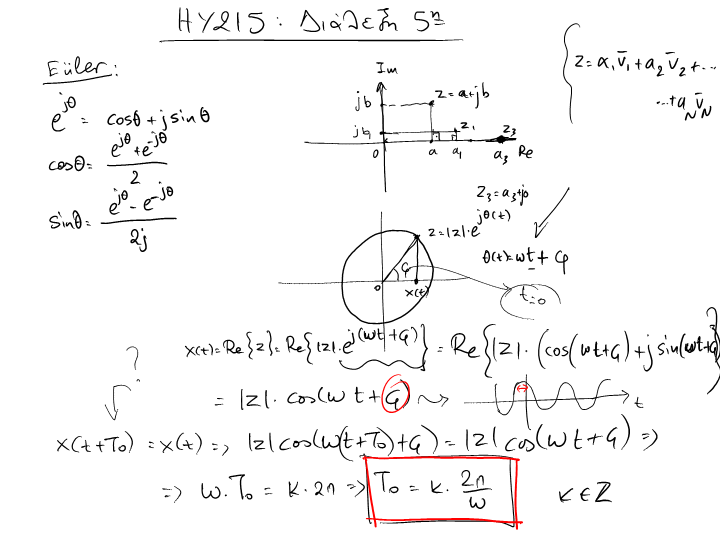 HY215: Διάλεξη 5η
Euler:
e^{jθ} = cosθ + j sinθ
cosθ = \frac{e^{jθ} + e^{-jθ}}{2}
sinθ = \frac{e^{jθ} - e^{-jθ}}{2j}
Im
jb
z = a + jb
jb₁
z₁
z₃
0
a
a₁
a₃
Re
z = a₁v̄₁ + a₂v̄₂ + ...
... + a_N v̄_N
z₃ = a₃ + j0
z = |z|·e^{jθ(t)}
θ(t) = ωt + φ
φ
0
x(t)
t=0
x(t) = Re{z} = Re{|z|·e^{j(ωt+φ)}} = Re{|z|·(cos(ωt+φ) + j sin(ωt+φ))}
?
= |z|·cos(ωt + φ)
t
x(t+T₀) = x(t) => |z|cos(ω(t+T₀)+φ) = |z|cos(ωt+φ) =>
=> ω·T₀ = k·2π => T₀ = k·\frac{2π}{ω}
k ∈ ℤ